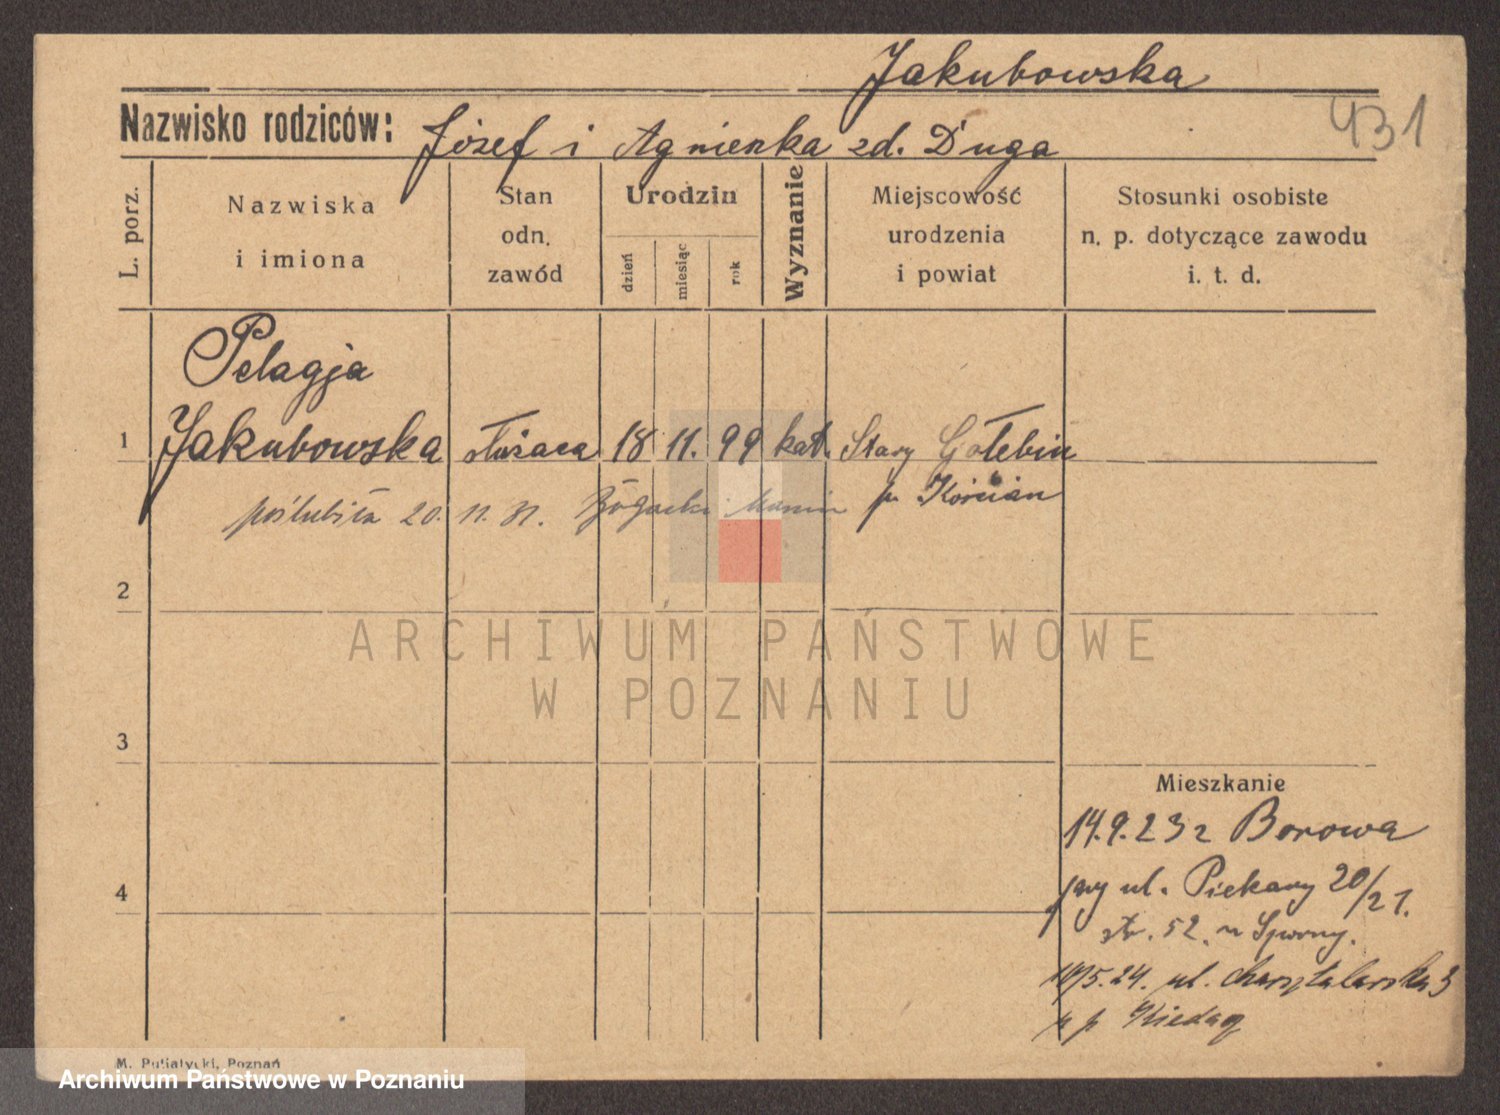 Jakubowska
431
Nazwisko rodziców: Józef i Agnieszka zd. Długa
L. porz.
Nazwiska
i imiona
Stan
odn.
zawód
Urodzin
dzień
miesiąc
rok
Wyznanie
Miejscowość
urodzenia
i powiat
Stosunki osobiste
n. p. dotyczące zawodu
i. t. d.
Pelagja
1 Jakubowska służąca 18 11. 99 kat. Stary Gołebin
p. Kościan
poślubiła 20. 11. 31.
2
ARCHIWUM PAŃSTWOWE
W POZNANIU
3
Mieszkanie
14.9.23 z Borowa
ul. Piekary 20/21.
str. 52.
ul.
4
M. Putiatycki, Poznań
Archiwum Państwowe w Poznaniu